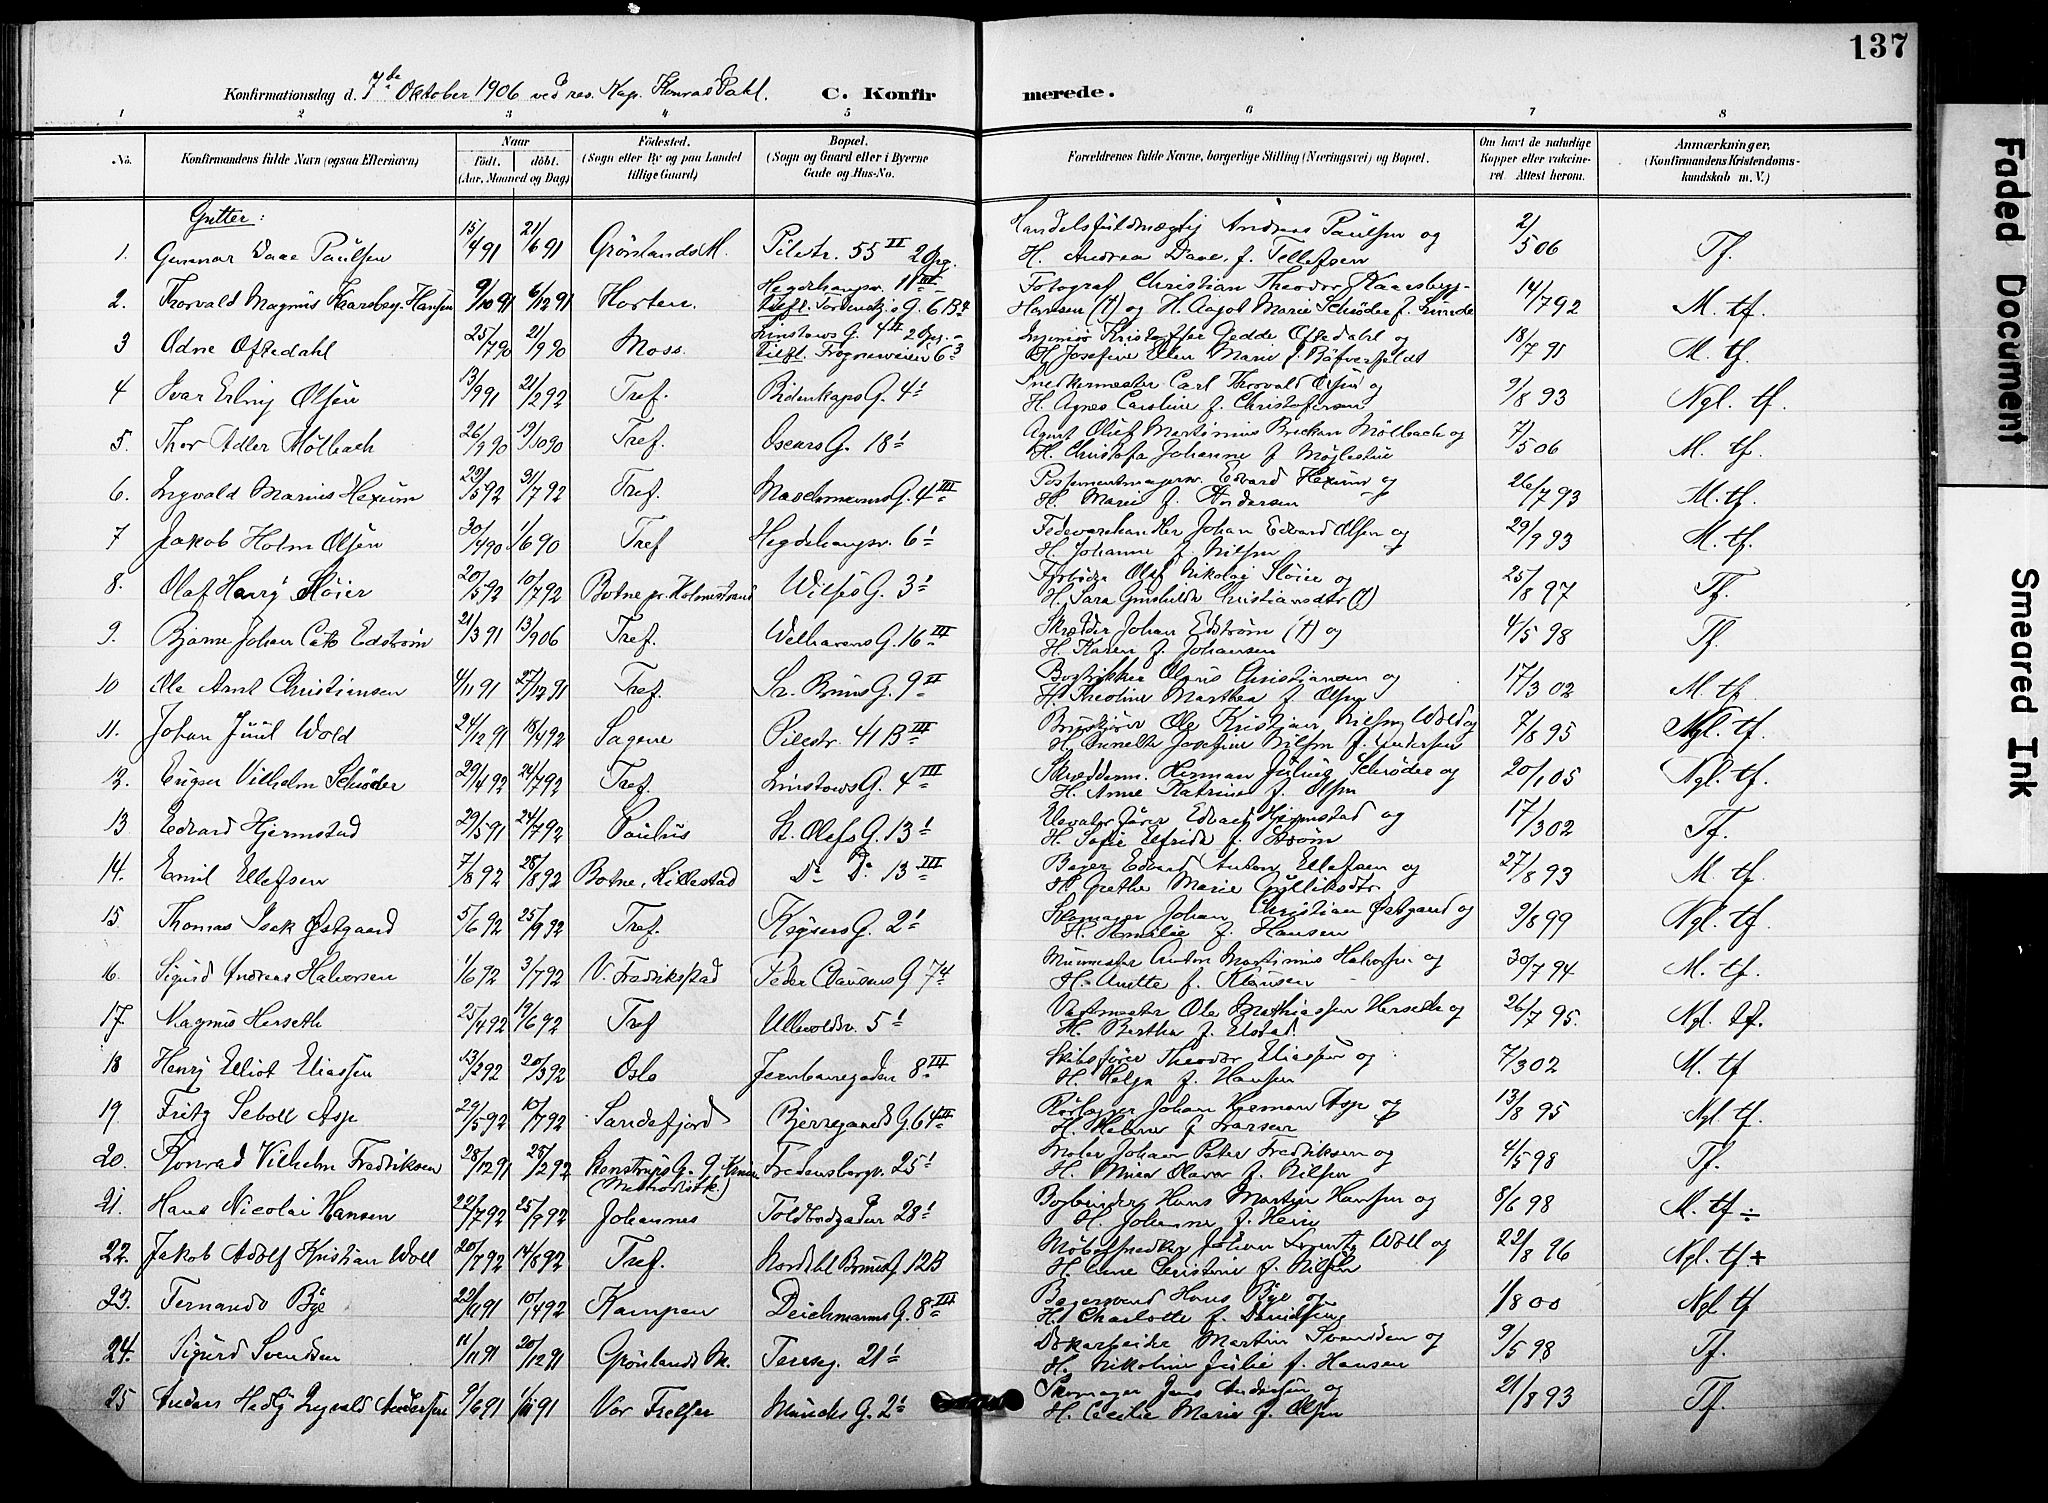 137
Konfirmationsdag d. 7de Oktober 1906 ved res. Kap. Konrad Dahl. C. Konfirmerede.
1 2 3 4 5 6 7 8
No. Konfirmandens fulde Navn (ogsaa Efternavn) Naar født. døbt. (Aar, Maaned og Dag) Fødested. (Sogn eller By og paa Landet tillige Gaard) Bopæl. (Sogn og Gaard eller i Byerne Gade og Hus-No. Forældrenes fulde Navne, borgerlige Stilling (Næringsvei) og Bopæl. Om havt de naturlige Kopper eller vaccineret. Attest herom. Anmærkninger. (Konfirmandens Kristendomskundskab m. V.)
Gutter:
1. Gunnar Daae Paulsen 15/4 91 21/6 91 Grønlands M. Pilestr. 55 II 2 Opg. Handelsfuldmægtig Andreas Paulsen og H. Andrea Daae f. Tellefsen 2/5 06 Tf.
2. Thorvald Magnus Kaarsberg-Hansen 9/10 91 6/12 91 Horten. Hegdehaugsv. 11 III Tordenskjs G. 6 B 4 Fotograf Christian Theodor Kaarsberg-Hansen (†) og H. Aagot Marie Schrøder f. Lunde 14/7 92 M. tf.
3 Odne Oftedahl 25/7 90 21/9 90 Moss. Linstows G. 4 II 2 Opg. Frognerveien 6 3 Ingeniør Kristoffer Gedde Oftedahl og H. Josefine Ellen Marie f. 18/7 91 M. tf.
4 Ivar Erling Olsen 13/9 91 21/2 92 Tref. Bidenkaps G. 4 I Snedkermester Carl Thorvald Olsen og H. Agnes Caroline f. Christofersen 9/8 93 Ngl. tf.
5. Thor Adler Mølbach 26/9 90 19/10 90 Tref. Oscars G. 18 I Agent Oluf Martinius Mølbach og H. Christofa Johanne f. 7/5 06 M. tf.
6. Ingvald Marius Hexum 29/5 92 31/7 92 Tref. Maschmanns G. 4 III Edvard Hexum og H. Marie f. Andersen 26/7 93 M. tf.
7 Jakob Holm Olsen 30/4 90 1/6 90 Tref Hegdehaugsv. 6 I Fedevarehandler Johan Edvard Olsen og H. Johanne f. Nilsen 29/9 93 M. tf.
8. Olaf Harry Sløier 20/5 92 10/7 92 Botne pr. Holmestrand Wilses G. 3 I Fyrbøder Olaf Nikolai Sløier og H. Sara Gunhilda Christiansdtr (†) 25/8 97 Tf.
9. Bjarne Johan Cato Edstrøm 21/3 91 13/9 06 Tref. Welhavens G. 16 III Skrædder Johan Edstrøm (†) og H. Karen f. Johansen 4/5 98 Tf.
10 Ole Arnt Christiansen 4/11 91 27/12 91 Tref. Sr. Bruns G. 9 II Christiansen og H. Theoline Marthea f. Olsen 17/3 02 M. tf.
11. Johan Juul Wold 24/12 91 18/4 92 Sagene Pilestr. 41 B III Ole Kristian Nilsen Wold og H. Josefine Nilsen f. Andersen 7/8 95 Ngl. tf.
12. Eugen Vilhelm Schrøder 29/4 92 24/7 92 Tref. Linstows G. 4 III Skræddem. Herman Julius Schrøder og H. Anne Katrine f. Olsen 20/1 05 Ngl. tf.
13 Edvard Hjermstad 29/5 91 24/7 92 Paulus St. Olafs G. 13 I Edvard Hjermstad og H. Sofie Elfrida f. Strøm 17/3 02 Tf.
14. Emil Ellefsen 7/8 92 28/8 92 Botne, Hillestad Do Do 13 III Bager Edvard Anton Ellefsen og H. Grethe Marie Gulliksdtr. 27/8 93 M. tf.
15 Thomas Isak Østgaard 5/6 92 25/9 92 Tref. Keysers G. 2 I Skomager Johan Christian Østgaard og H. Amalie f. Hansen 9/8 99 Ngl. tf.
16. Sigurd Andreas Halvorsen 1/6 92 3/7 92 V. Fredrikstad Peder Clausens G 7 4 Murmester Anton Martinius Halvorsen og H. Anette f. Klausen 30/7 94 M. tf.
17. Magnus Herseth 25/4 92 19/6 92 Tref Ullevoldsv. 5 I Vagtmester Ole Mathiassen Herseth og H. Berthe f. Elstad. 26/7 95. Ngl. tf.
18 Henry Elliot Eliassen 13/2 92 20/3 92 Oslo Jernbanegaden 8 III Skibsfører Theodor Eliassen og H. Helga f. Hansen 7/3 02 M. tf
19. Fritz Seboll Asp 29/5 92 10/7 92 Sandefjord Bjerregaards G. 64 III Rørlægger Johan Herman Asp og H. Helene f. Larsen 13/8 95 Ngl tf.
20. Konrad Vilhelm Fredriksen 28/12 91 28/2 92 Stenstrups G. (Methodistk) Fredensborgv. 25 I Maler Johan Peter Fredriksen og H. Mina Olava f. Nilsen 4/5 98 Tf.
21. Hans Nicolai Hansen 22/7 92 25/9 92 Johannes Toldbodgaden 28 I Bogbinder Hans Martin Hansen og H. Johanne f. Hein 8/6 98 M. tf ÷
22. Jakob Adolf Kristian Woll 20/7 92 14/8 92 Tref. Nordahl Brunsg. 12B Møbelsnedker Johan Lorentz Woll og H. Anne Christine f. Nilsen 22/8 96 Ngl. tf +
23. Fernando Bye 22/11 91 10/4 92 Kampen Deichmanns G. 8 III Bagersvend Hans Bye og H. Charlotte f. Davidsen 1/8 00 Ngl tf
24. Sigurd Svendsen 11/11 91 20/12 91 Grønlands M. Teresg. 21 I Dokarbeider Martin Svendsen og H. Nikoline Julie f. Hansen 9/5 98 Tf.
25 Anders Hedly Ingvald Andersen 9/6 91 1/11 91 Vor Frelser Munchs G. 2 I Skomager Jens Andersen og H. Cecilie Marie f. Olsen 21/8 93 Tf.
Faded Document
Smeared Ink